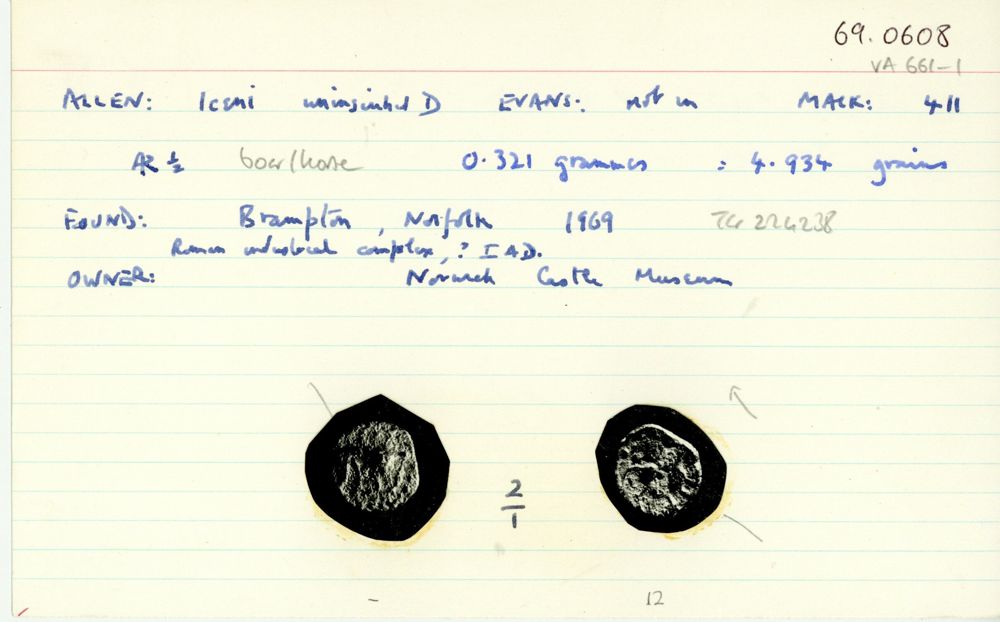 69.0608
VA 661-1
ALLEN: Iceni uninscribed D EVANS: not in MACK: 411
AR ½ boar/horse 0.321 grammes : 4.934 grains
FOUND: Brampton, Norfolk 1969 TG 224238
Roman industrial complex, ? I AD.
OWNER: Norwich Castle Museum
2
1
- 12